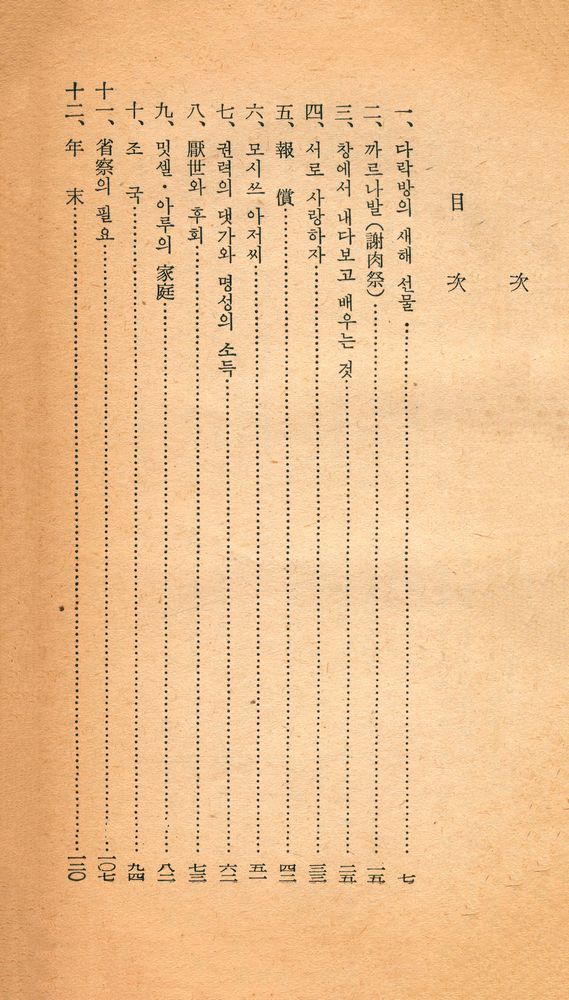 次
目次
一、다락방의 새해 선물 七
二、까르나발(謝肉祭) 一五
三、창에서 내다보고 배우는 것 二五
四、서로 사랑하자 三三
五、報償 四二
六、모시쓰 아저씨 五一
七、권력의 댓가와 명성의 소득 六二
八、厭世와 후회 七三
九、밋셀・아루의 家庭 八二
十、조국 九四
十一、省察의 필요 一〇七
十二、年末 一二〇